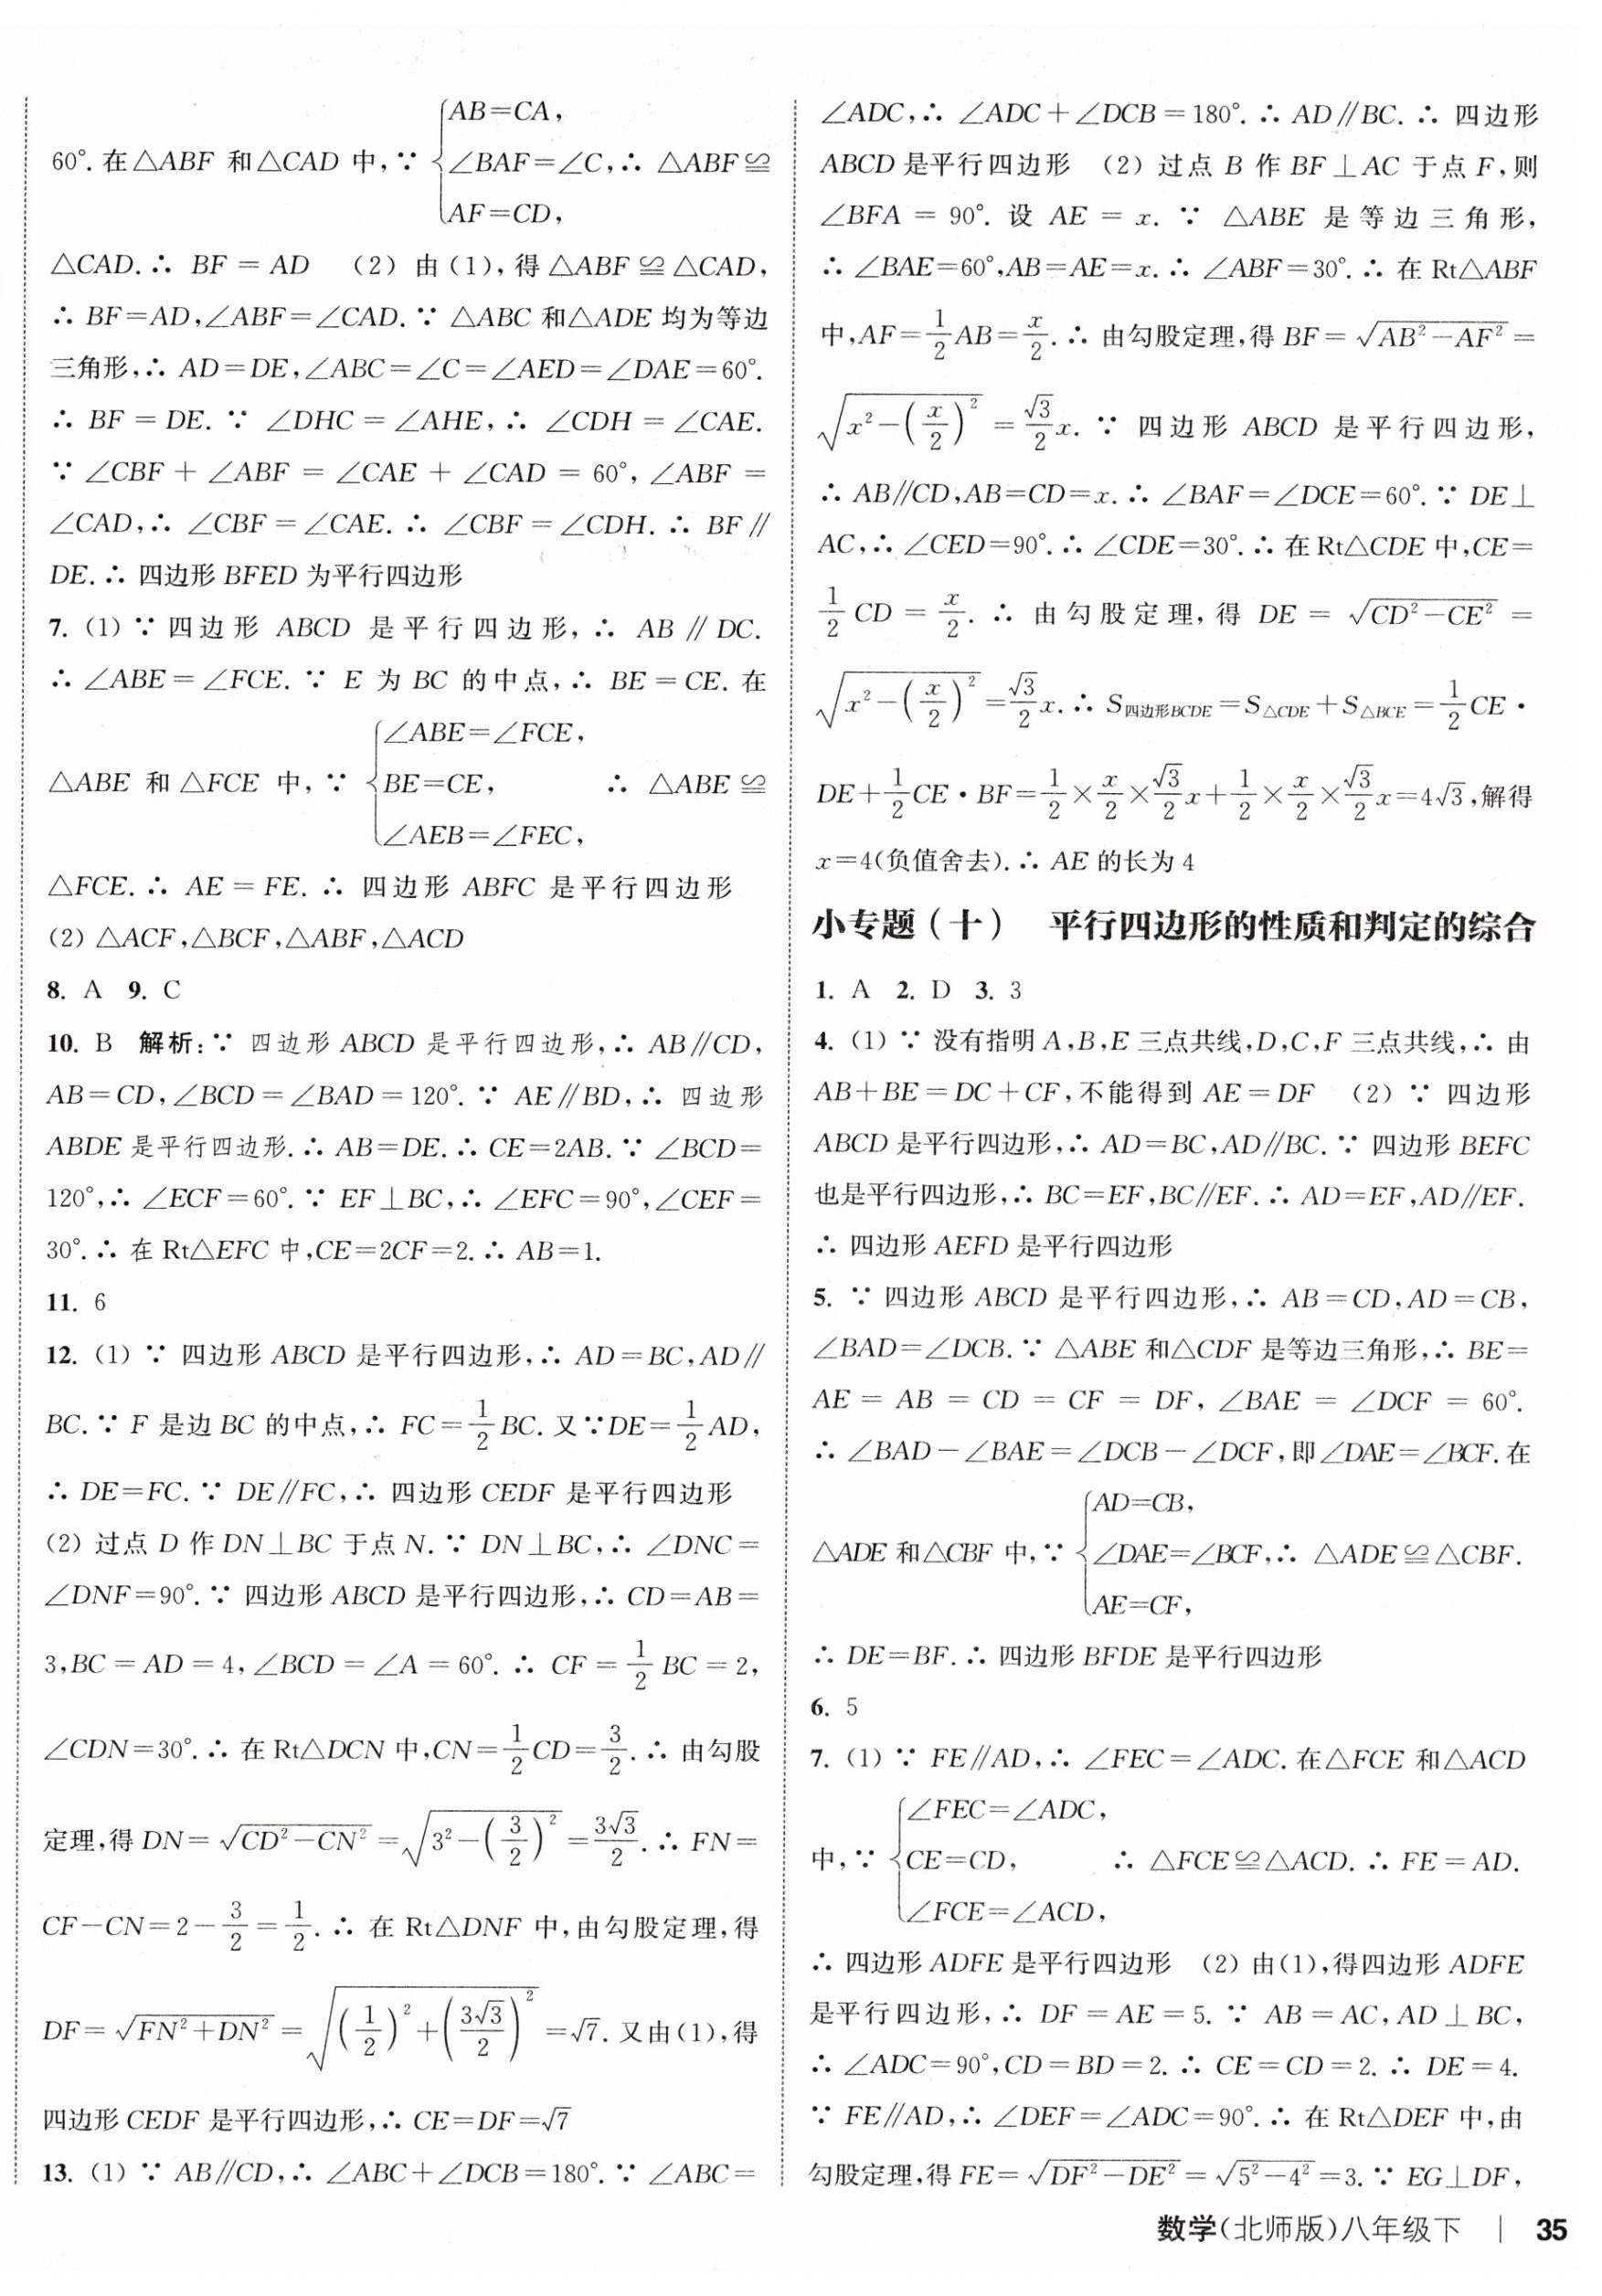 60°. 在△ABF 和△CAD 中, ∵ {AB=CA, ∠BAF=∠C, AF=CD, ∴ △ABF≌
△CAD. ∴ BF=AD (2) 由(1), 得△ABF≌△CAD,
∴ BF=AD,∠ABF=∠CAD. ∵ △ABC 和△ADE 均为等边
三角形,∴ AD=DE,∠ABC=∠C=∠AED=∠DAE=60°.
∴ BF=DE. ∵ ∠DHC=∠AHE,∴ ∠CDH=∠CAE.
∵ ∠CBF+∠ABF=∠CAE+∠CAD=60°,∠ABF=
∠CAD,∴ ∠CBF=∠CAE. ∴ ∠CBF=∠CDH. ∴ BF∥
DE. ∴ 四边形 BFED 为平行四边形
7. (1) ∵ 四边形 ABCD 是平行四边形,∴ AB∥DC.
∴ ∠ABE=∠FCE. ∵ E 为 BC 的中点,∴ BE=CE. 在
△ABE 和 △FCE 中, ∵ {∠ABE=∠FCE, BE=CE, ∠AEB=∠FEC, ∴ △ABE≌
△FCE. ∴ AE=FE. ∴ 四边形 ABFC 是平行四边形
(2) △ACF,△BCF,△ABF,△ACD
8. A 9. C
10. B 解析:∵ 四边形 ABCD 是平行四边形,∴ AB∥CD,
AB=CD,∠BCD=∠BAD=120°. ∵ AE∥BD,∴ 四边形
ABDE 是平行四边形. ∴ AB=DE. ∴ CE=2AB. ∵ ∠BCD=
120°,∴ ∠ECF=60°. ∵ EF⊥BC,∴ ∠EFC=90°,∠CEF=
30°. ∴ 在 Rt△EFC 中,CE=2CF=2. ∴ AB=1.
11. 6
12. (1) ∵ 四边形 ABCD 是平行四边形,∴ AD=BC,AD∥
BC. ∵ F 是边 BC 的中点,∴ FC=1/2 BC. 又∵DE=1/2 AD,
∴ DE=FC. ∵ DE∥FC,∴ 四边形 CEDF 是平行四边形
(2) 过点 D 作 DN⊥BC 于点 N. ∵ DN⊥BC,∴ ∠DNC=
∠DNF=90°. ∵ 四边形 ABCD 是平行四边形,∴ CD=AB=
3,BC=AD=4,∠BCD=∠A=60°. ∴ CF=1/2 BC=2,
∠CDN=30°. ∴ 在 Rt△DCN 中,CN=1/2 CD=3/2. ∴ 由勾股
定理,得 DN=√(CD²−CN²)=√(3²−(3/2)²)=3√3/2. ∴ FN=
CF−CN=2−3/2=1/2. ∴ 在 Rt△DNF 中,由勾股定理,得
DF=√(FN²+DN²)=√((1/2)²+(3√3/2)²)=√7. 又由(1),得
四边形 CEDF 是平行四边形,∴ CE=DF=√7
13. (1) ∵ AB∥CD,∴ ∠ABC+∠DCB=180°. ∵ ∠ABC=
∠ADC,∴ ∠ADC+∠DCB=180°. ∴ AD∥BC. ∴ 四边形
ABCD 是平行四边形 (2) 过点 B 作 BF⊥AC 于点 F,则
∠BFA=90°. 设 AE=x. ∵ △ABE 是等边三角形,
∴ ∠BAE=60°,AB=AE=x. ∴ ∠ABF=30°. ∴ 在 Rt△ABF
中,AF=1/2 AB=x/2. ∴ 由勾股定理,得 BF=√(AB²−AF²)=
√(x²−(x/2)²)=√3/2 x. ∵ 四边形 ABCD 是平行四边形,
∴ AB∥CD,AB=CD=x. ∴ ∠BAF=∠DCE=60°. ∵ DE⊥
AC,∴ ∠CED=90°. ∴ ∠CDE=30°. ∴ 在 Rt△CDE 中,CE=
1/2 CD=x/2. ∴ 由勾股定理,得 DE=√(CD²−CE²)=
√(x²−(x/2)²)=√3/2 x. ∴ S四边形BCDE=S△CDE+S△BCE=1/2 CE·
DE+1/2 CE·BF=1/2×x/2×√3/2 x+1/2×x/2×√3/2 x=4√3,解得
x=4(负值舍去). ∴ AE 的长为 4
小专题(十) 平行四边形的性质和判定的综合
1. A 2. D 3. 3
4. (1) ∵ 没有指明 A,B,E 三点共线,D,C,F 三点共线,∴ 由
AB+BE=DC+CF,不能得到 AE=DF (2) ∵ 四边形
ABCD 是平行四边形,∴ AD=BC,AD∥BC. ∵ 四边形 BEFC
也是平行四边形,∴ BC=EF,BC∥EF. ∴ AD=EF,AD∥EF.
∴ 四边形 AEFD 是平行四边形
5. ∵ 四边形 ABCD 是平行四边形,∴ AB=CD,AD=CB,
∠BAD=∠DCB. ∵ △ABE 和△CDF 是等边三角形,∴ BE=
AE=AB=CD=CF=DF,∠BAE=∠DCF=60°.
∴ ∠BAD−∠BAE=∠DCB−∠DCF,即∠DAE=∠BCF. 在
△ADE 和△CBF 中,∵ {AD=CB, ∠DAE=∠BCF, AE=CF, ∴ △ADE≌△CBF.
∴ DE=BF. ∴ 四边形 BFDE 是平行四边形
6. 5
7. (1) ∵ FE∥AD,∴ ∠FEC=∠ADC. 在△FCE 和△ACD
中,∵ {∠FEC=∠ADC, CE=CD, ∠FCE=∠ACD, ∴ △FCE≌△ACD. ∴ FE=AD.
∴ 四边形 ADFE 是平行四边形 (2) 由(1),得四边形 ADFE
是平行四边形,∴ DF=AE=5. ∵ AB=AC,AD⊥BC,
∴ ∠ADC=90°,CD=BD=2. ∴ CE=CD=2. ∴ DE=4.
∵ FE∥AD,∴ ∠DEF=∠ADC=90°. ∴ 在 Rt△DEF 中,由
勾股定理,得 FE=√(DF²−DE²)=√(5²−4²)=3. ∵ EG⊥DF,
数学(北师版)八年级下 | 35